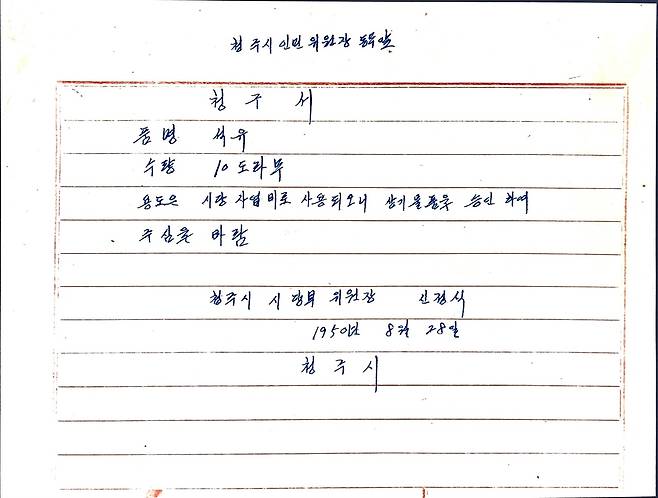 청주시 인민 위원장 동무앞
청 구 서
품 명 석 유
수 량 10 도라무
용도은 시당 사업 비로 사용되오니 상기물품을 승인 하여
주심을 바람
청주시 시 당부 위원장 신정식
1950년 8월 28일
청 주 시